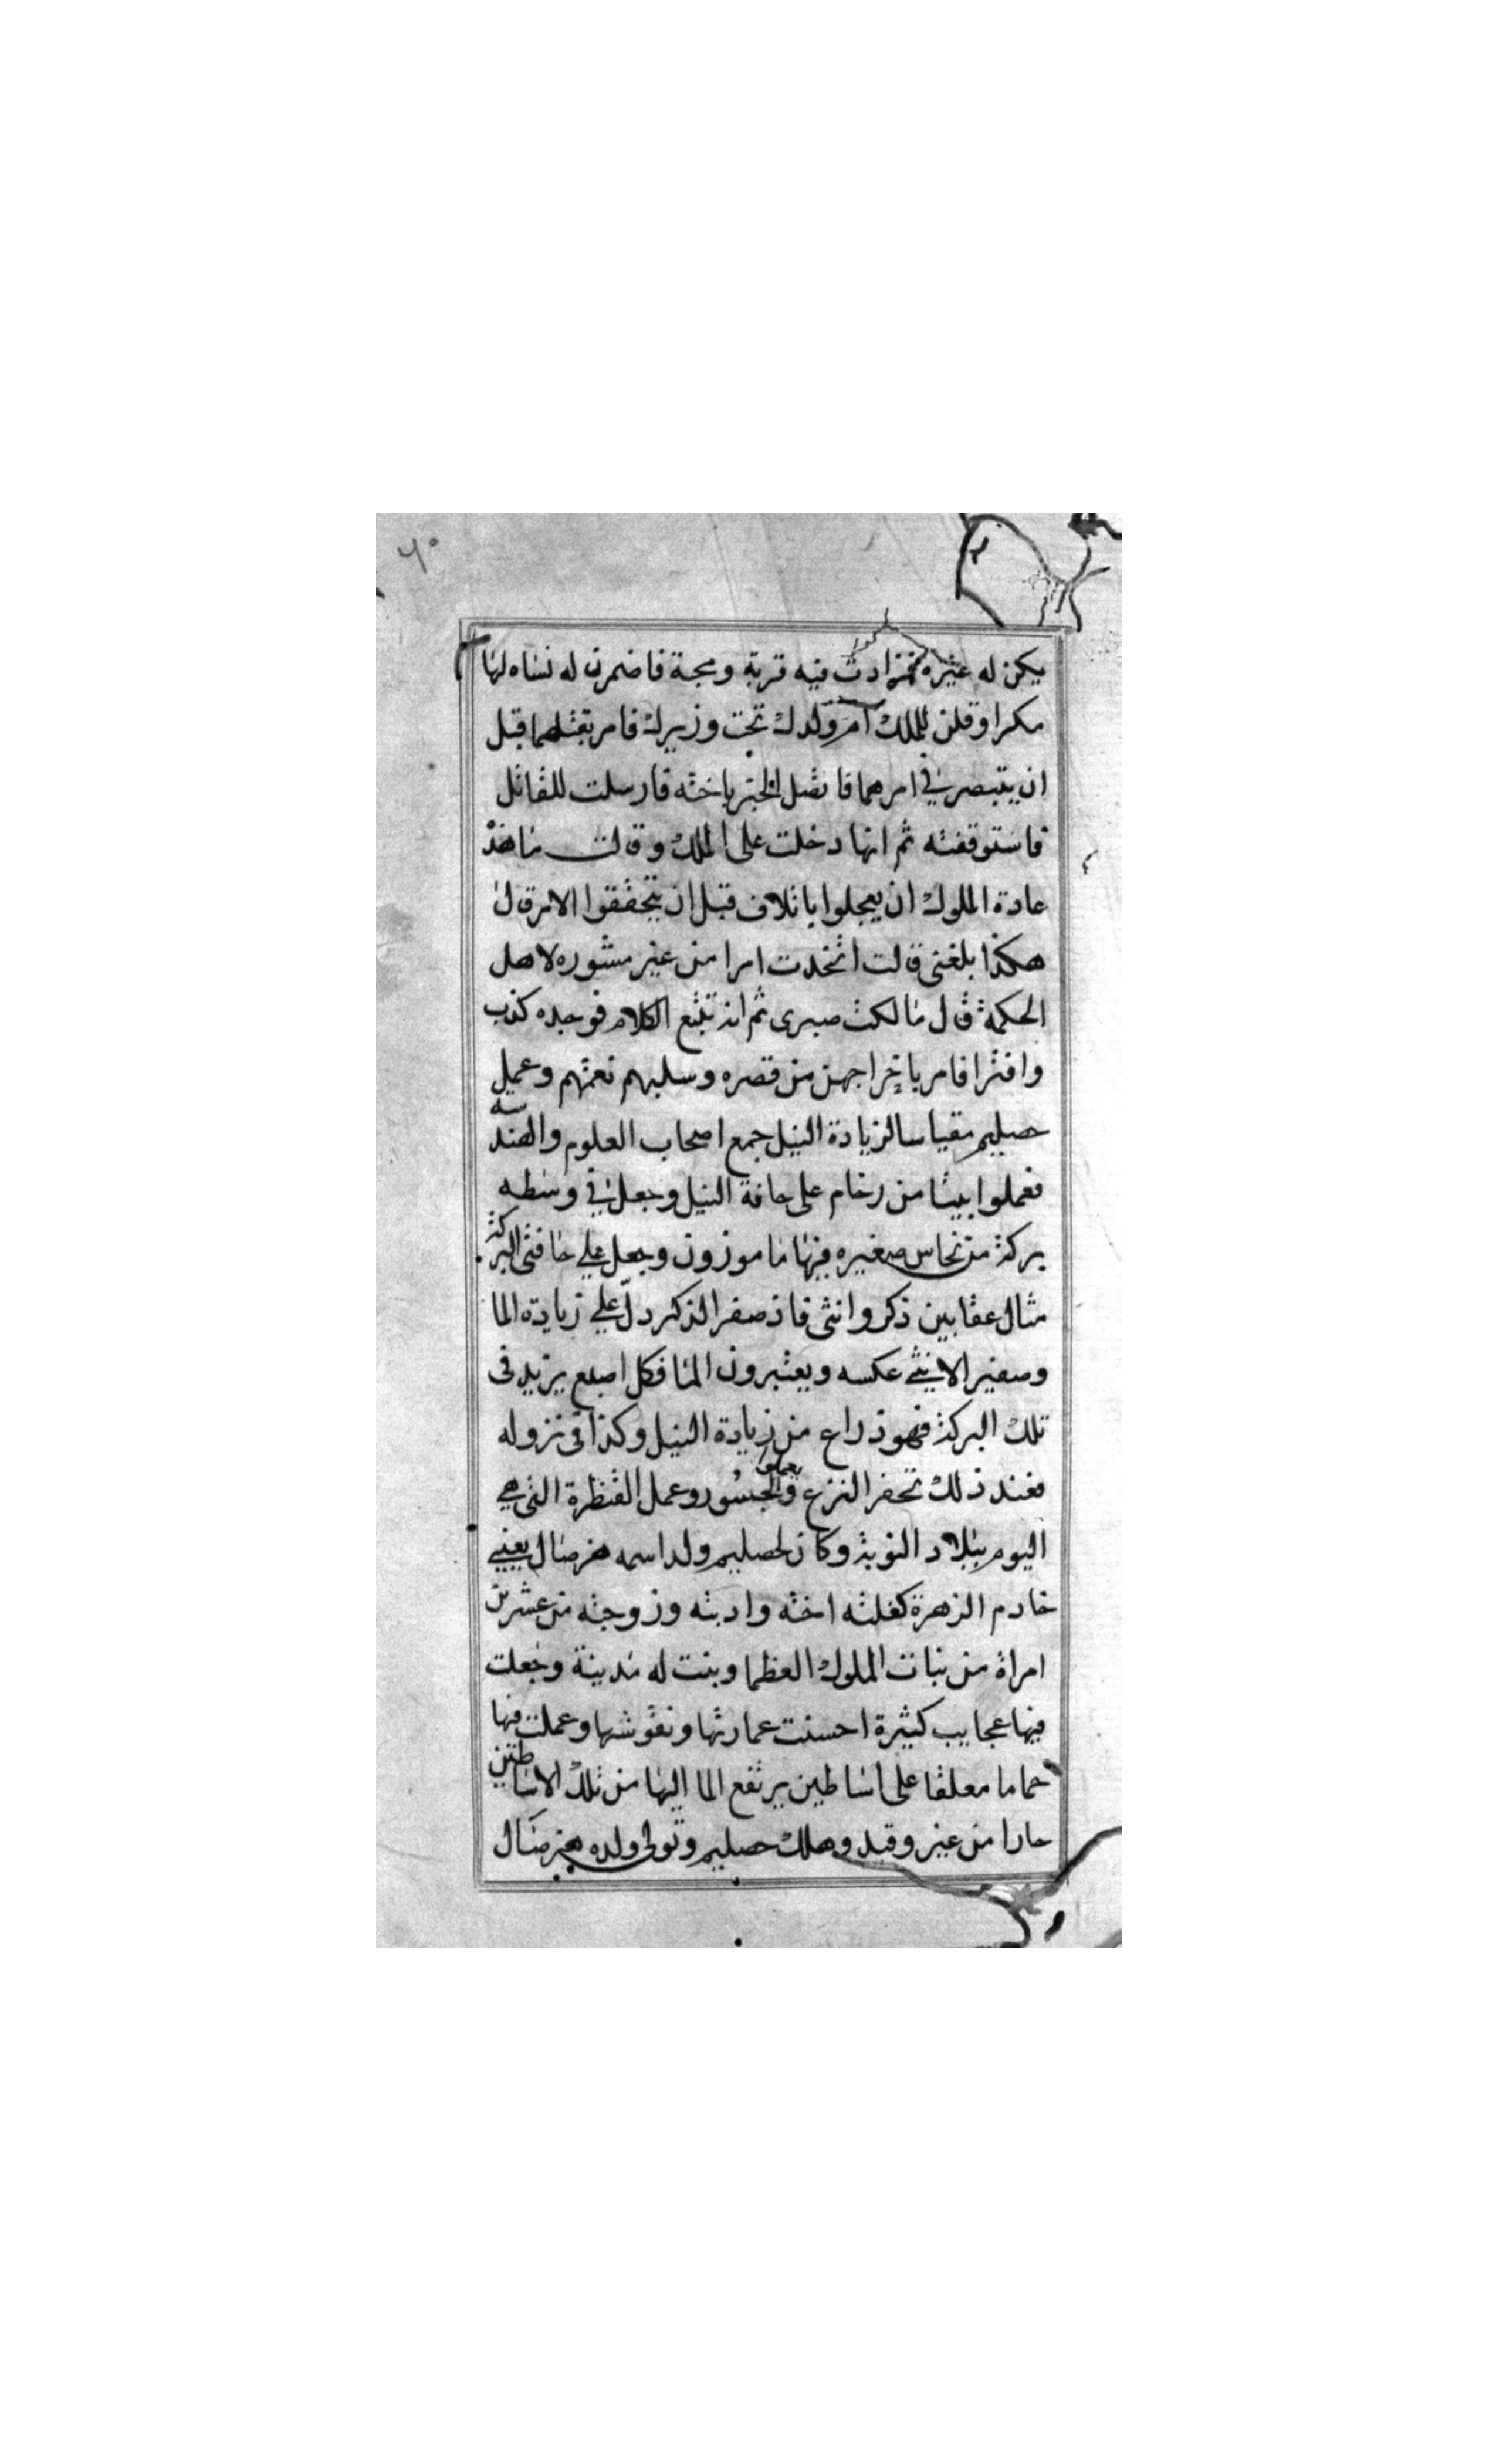 ٦٠
يكن له غيره فزادت فيه قربة ومحبة فاضمرن له نساه لها
مكرا وقلن للملك امر ولدك تحت وزيرك فامر بقتلهما قبل
ان يتبصر في امرهما فاتصل الخبر باخته فارسلت للقاتل
فاستوقفته ثم انها دخلت على الملك وقالت ما هذ
عادة الملوك ان يعجلوا باتلاف قبل ان يتحققوا الامر قال
هكذا بلغني قالت اتخدت امرا من غير مشوره لاهل
الحكمة قال ما لكت صبرى ثم انه تتبع الكلام فوجده كذب
وافترا فامر باخراجهن من قصره وسلبهم نعمتهم وعمل
حصليم مقياسا لزيادة النيل جمع اصحاب العلوم والهندسه
فعملوا بيتا من رخام على حافة النيل وجعل في وسطه
بركة من نحاس صغيره فيها ما موزون وجعل علي حافتى البركة
مثال عقابين ذكر وانثى فاذ صفر الذكر دلّ علي زيادة الما
وصفير الانيثي عكسه ويعتبرون الما فكل اصبع يزيد فى
تلك البركة فهو ذراع من زيادة النيل وكذا في نزوله
فعند ذلك تحفر النزع والجسور وعمل القنطرة التى هي
اليوم ببلاد النوبة وكان لحصليم ولد اسمه هرصال يعني
خادم الزهرة كفلته اخته وادبته وزوجته من عشرين
امراة من بنات الملوك العظما وبنت له مدينة وجعلت
فيها عجايب كثيرة احسنت عمارتها ونقوشها وعملت فيها
حماما معلقا على اساطين يرتفع الما اليها من تلك الاساطين
حارا من غير وقيد وهلك حصليم وتولى ولده هرصال